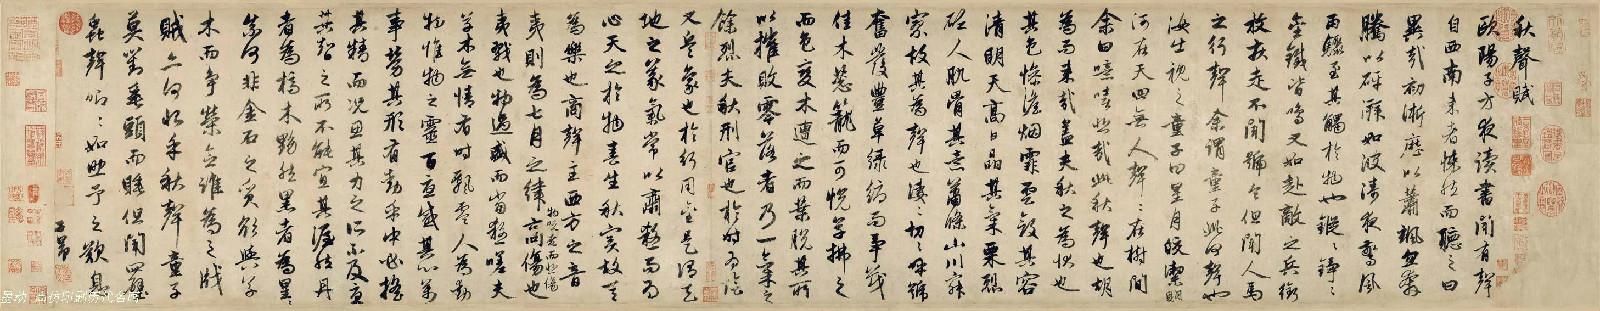 秋聲賦
歐陽子方夜讀書聞有聲
自西南来者悚然而聽之曰
異哉初淅瀝以蕭颯忽奔
騰以砰湃如波濤夜驚風
雨驟至其觸於物也鏦〻錚〻
金鐵皆鳴又如赴敵之兵銜
枚疾走不聞號令但聞人馬
之行聲余謂童子此何聲也
汝出視之童子曰星月皎潔明
河在天四無人聲〻在樹間
余曰噫嘻悲哉此秋聲也胡
為而来哉蓋夫秋之為狀也
其色慘澹烟霏雲斂其容
清明天高日晶其氣栗烈
砭人肌骨其意蕭條山川寂
寥故其為聲也淒〻切〻呼號
奮發豐草緑縟而爭茂
佳木葱籠而可悅草拂之
而色變木遭之而葉脫其所
以摧敗零落者乃一氣之
餘烈夫秋刑官也於時為陰
又兵象也於行用金是謂天
地之義氣常以肅殺而為
心天之於物春生秋實故其在
為樂也商聲主西方之音
夷則為七月之律商傷也
物既老而悲傷
夷戮也物過盛而當殺嗟夫
草木無情有時飄零人為動
物惟物之靈百憂感其心萬
事勞其形有動乎中必搖
其精而況思其力之所不及憂
其智之所不能宜其渥然丹
者為槁木黟然黑者為星〻
奈何非金石之質欲與草
木而爭榮念誰為之戕
賊亦何恨乎秋聲童子
莫對垂頭而睡但聞四壁
蟲聲唧〻如助予之歎息
子昂